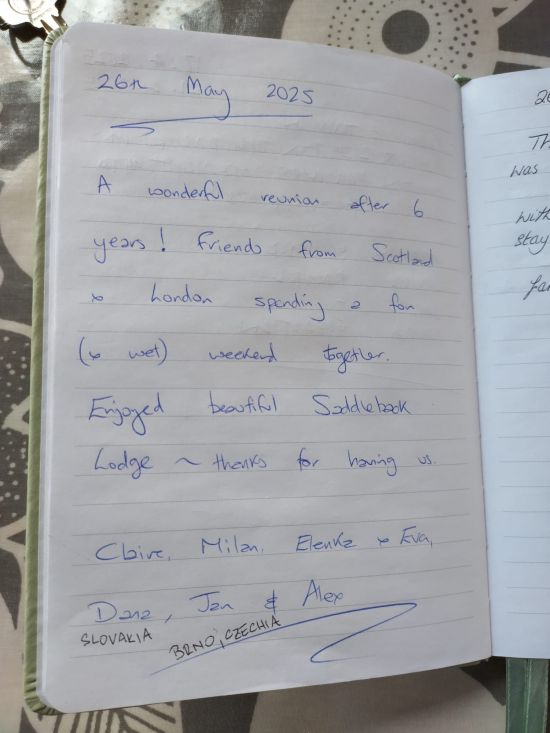 26th May 2025
A wonderful reunion after 6
years! Friends from Scotland
& London spending a fun
(& wet) weekend together.
Enjoyed beautiful Saddleback
Lodge ~ thanks for having us.
Claire, Milan, Elenka & Eva,
Dana, Jan & Alex
SLOVAKIA
BRNO, CZECHIA
was
with
stay